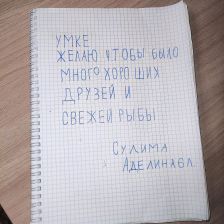 УМКЕ
ЖЕЛАЮ ЧТОБЫ БЫЛО
МНОГО ХОРОШИХ
ДРУЗЕЙ И
СВЕЖЕЙ РЫБЫ
СУЛИМА
АДЕЛИНА 6Л.